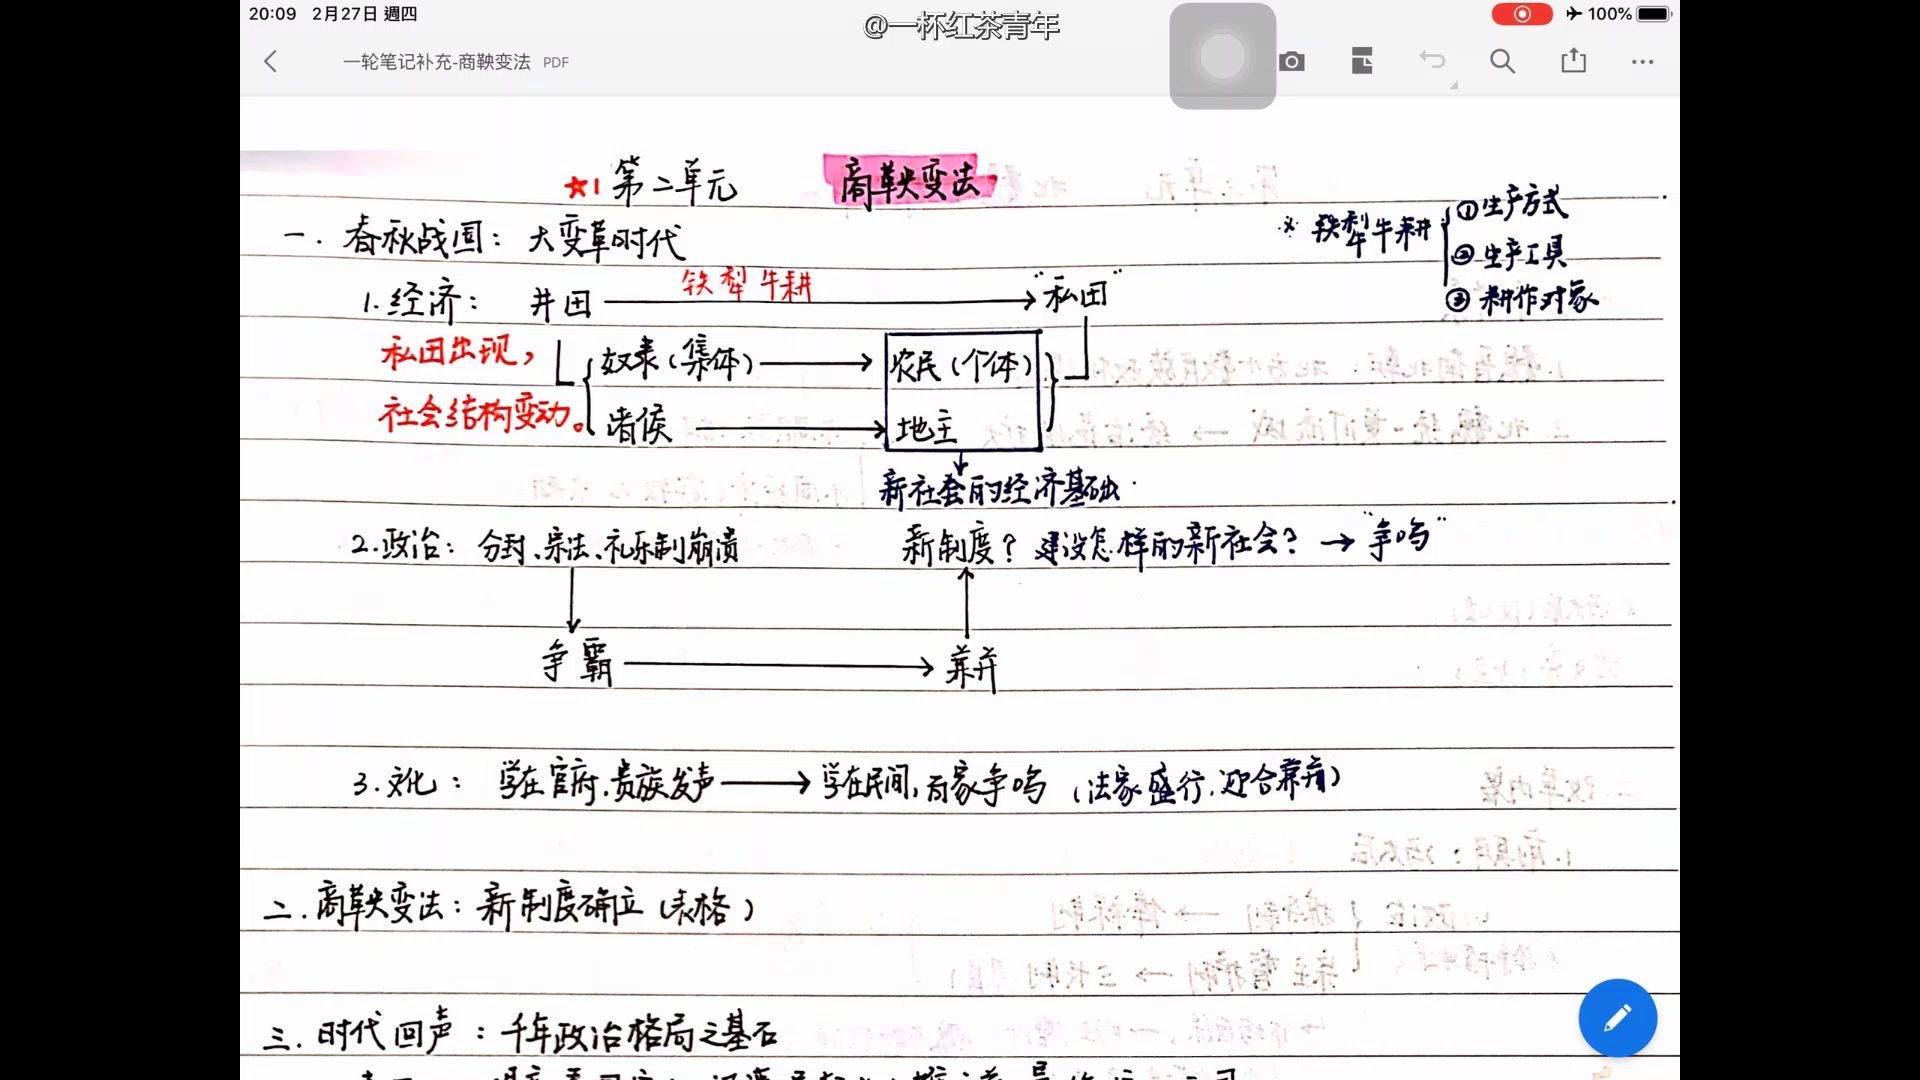 20:09 2月27日 週四
100%
@一杯红茶青年
一轮笔记补充-商鞅变法 PDF
★1 第二单元 商鞅变法
※ 铁犁牛耕
①生产方式
②生产工具
③耕作对象
一. 春秋战国: 大变革时代
1.经济: 井田 铁犁牛耕 → "私田"
私田出现, 奴隶(集体) → 农民(个体)
社会结构变动。 诸侯 → 地主
新社会的经济基础
2.政治: 分封、宗法、礼乐制崩溃 新制度? 建设怎样的新社会? → "争鸣"
争霸 → 兼并
3.文化: 学在官府,贵族发声 → 学在民间,百家争鸣 (法家盛行,迎合兼并)
二. 商鞅变法: 新制度确立(表格)
三. 时代回声: 千年政治格局之基石